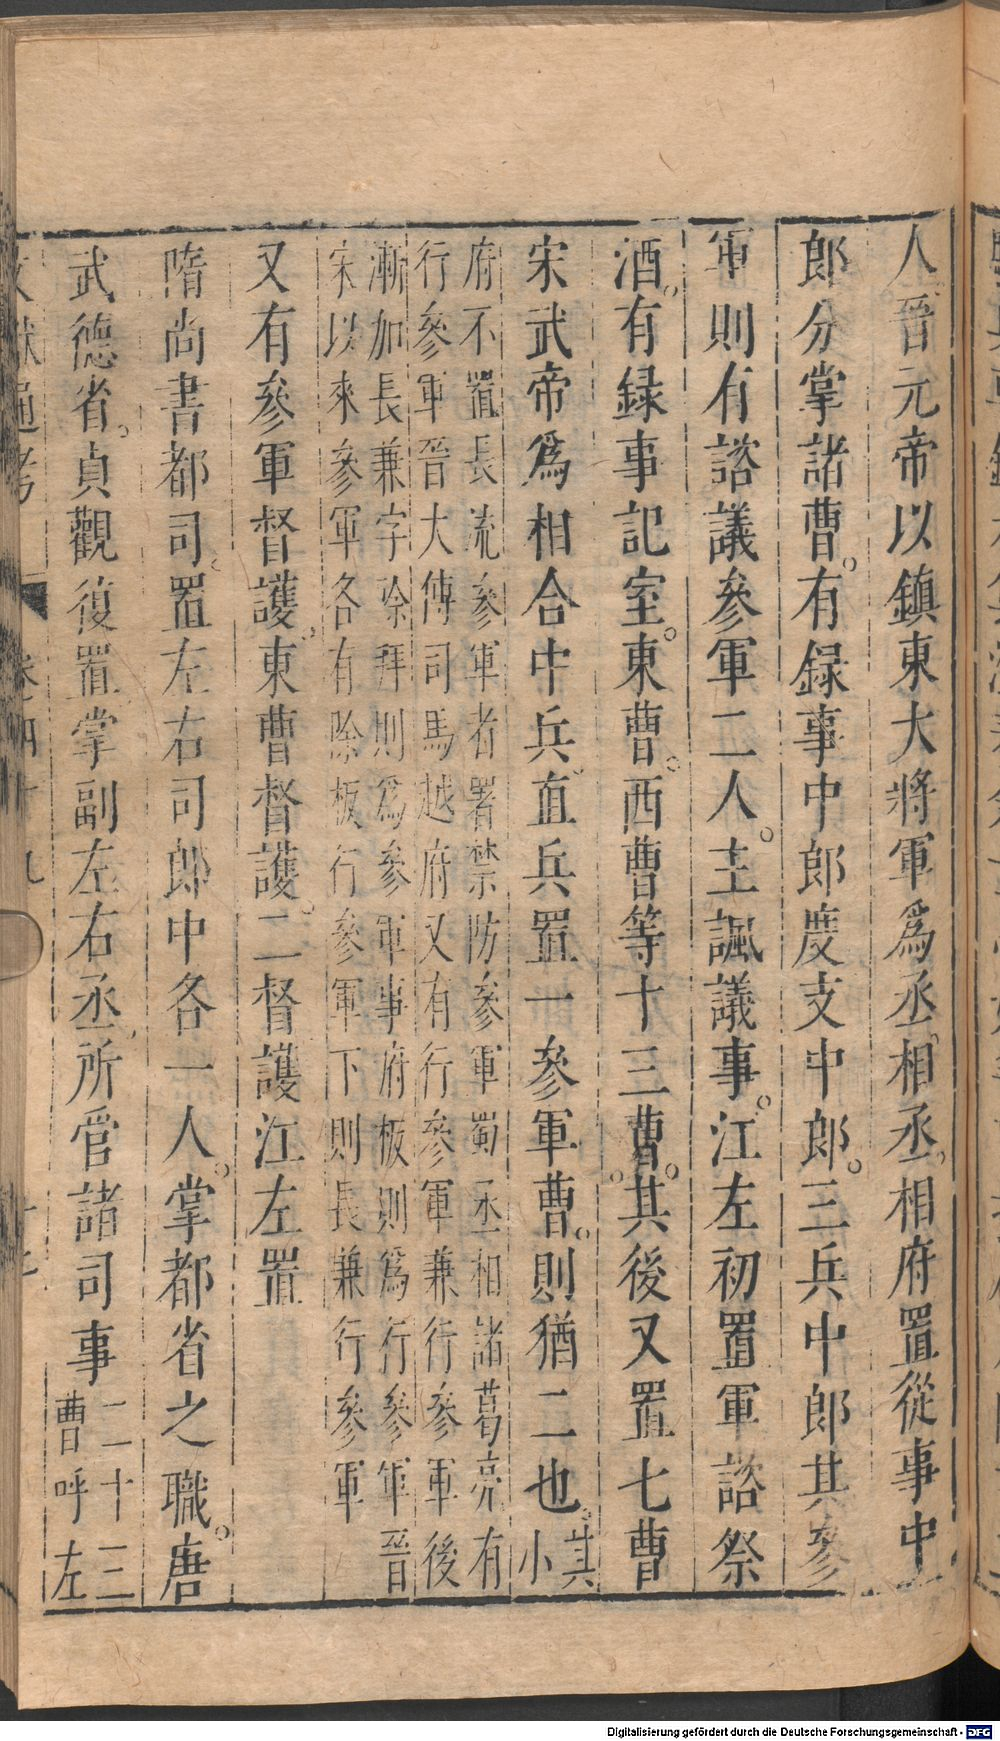 人晉元帝以鎮東大將軍爲丞相丞相府置從事中
郎分掌諸曹有録事中郎度支中郎三兵中郎其參
軍則有諮議參軍二人主諷議事江左初置軍諮祭
酒有録事記室東曹西曹等十三曹其後又置七曹
宋武帝爲相合中兵直兵置一參軍曹則猶二也其
小
府不置長流參軍者置禁防參軍蜀丞相諸葛亮有
行參軍晉大傅司馬越府又有行參軍兼行參軍後
漸加長兼字除拜則爲參軍事府板則爲行參軍晉
宋以來參軍各有除板行參軍下則長兼行參軍
又有參軍督護東曹督護二督護江左置
隋尚書都司置左右司郎中各一人掌都省之職唐
武德省貞觀復置掌副左右丞所管諸司事二十三
曹呼左
文獻通考 卷之四十九
Digitalisierung gefördert durch die Deutsche Forschungsgemeinschaft - DFG